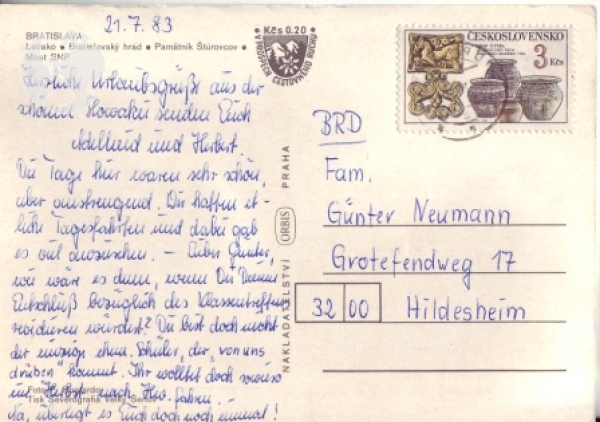 21.7.83
BRATISLAVA
Letisko • Bratislavský hrad • Pamätník Štúrovcov •
Most SNP
Herzliche Urlaubsgrüße aus der
schönen Slowakei senden Euch
Adelheid und Herbert.
Die Tage hier waren sehr schön,
aber anstrengend. Wir hatten et-
liche Tagesfahrten und dabei gab
es viel anzusehen. – Lieber Günter,
wie wäre es denn, wenn Du Deinen
Entschluß bezüglich des Klassentreffens
revidieren würdest? Du bist doch nicht
der einzige ehem. Schüler, der „von uns
drüben" kommt. Ihr wolltet doch sowieso
im Herbst nach Hw. fahren. –
Na, überlegt es Euch doch noch einmal!
Foto
Tisk Severografia Velký Šenov
Kčs 0.20
V PROSPECH CESTOVNÉHO RUCHU
NAKLADATELSTVÍ ORBIS PRAHA
ČESKOSLOVENSKO
3 Kčs
BRD
Fam.
Günter Neumann
Grotefendweg 17
3200 Hildesheim